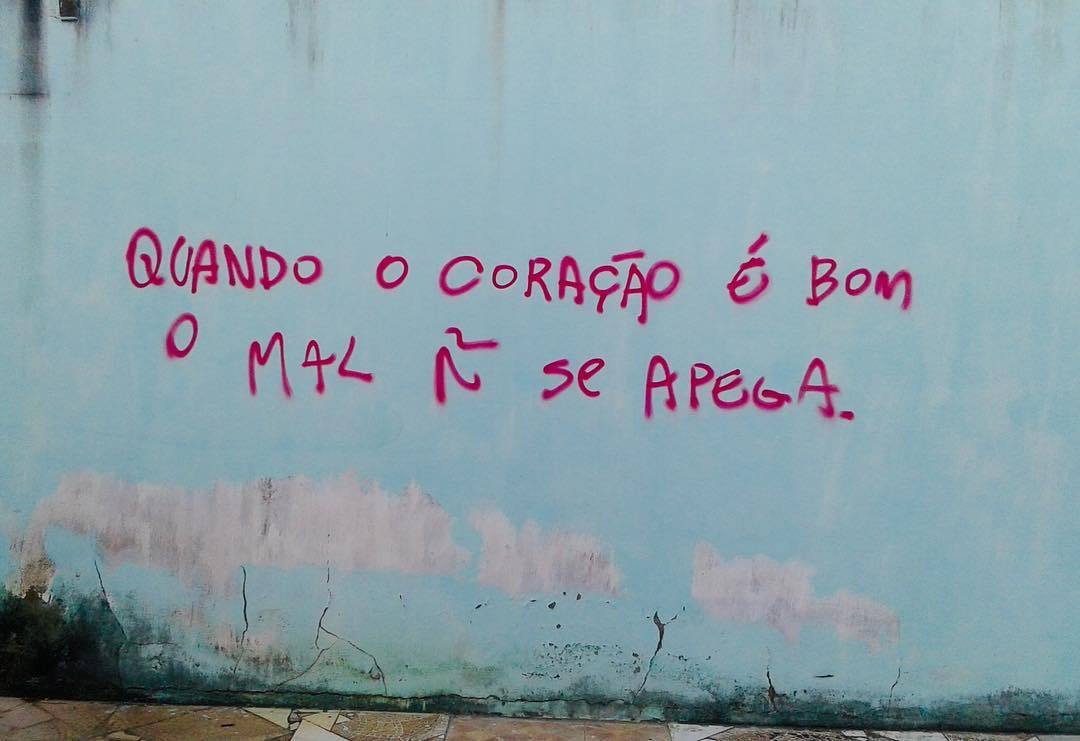 QUANDO O CORAÇÃO É BOM
O MAL Ñ SE APEGA.